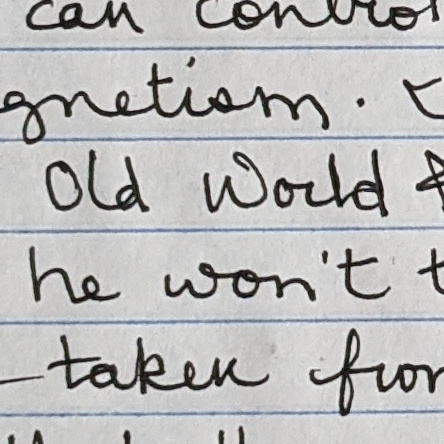 can control
gnetism.
Old World
he won't t
-taken from